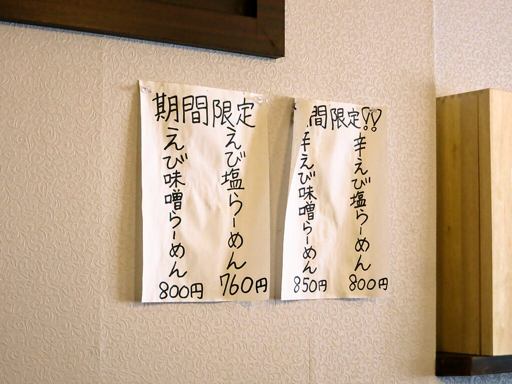 期間限定
えび塩らーめん
760円
えび味噌らーめん
800円
間限定!!
辛えび塩らーめん
800円
辛えび味噌らーめん
850円